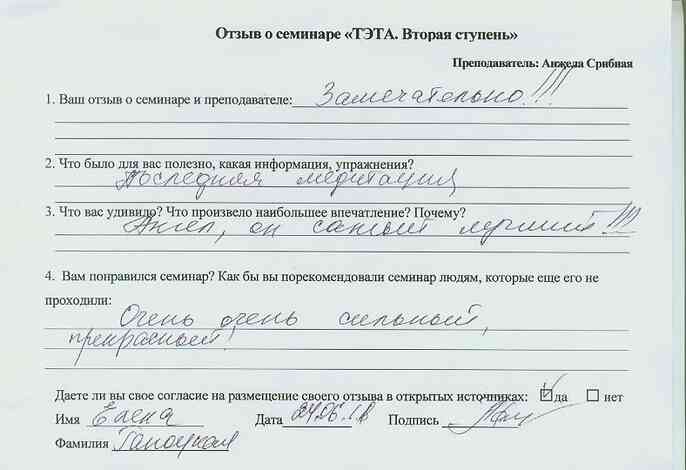 Отзыв о семинаре «ТЭТА. Вторая ступень»
Преподаватель: Анжела Срибная
1. Ваш отзыв о семинаре и преподавателе: Замечательно!!!
2. Что было для вас полезно, какая информация, упражнения?
Последняя медитация
3. Что вас удивило? Что произвело наибольшее впечатление? Почему?
Ангел, он самый лучший!!!
4. Вам понравился семинар? Как бы вы порекомендовали семинар людям, которые еще его не
проходили:
Очень очень сильный,
прекрасный!
Даете ли вы свое согласие на размещение своего отзыва в открытых источниках: да нет
Имя Елена Дата 24.06.18 Подпись
Фамилия